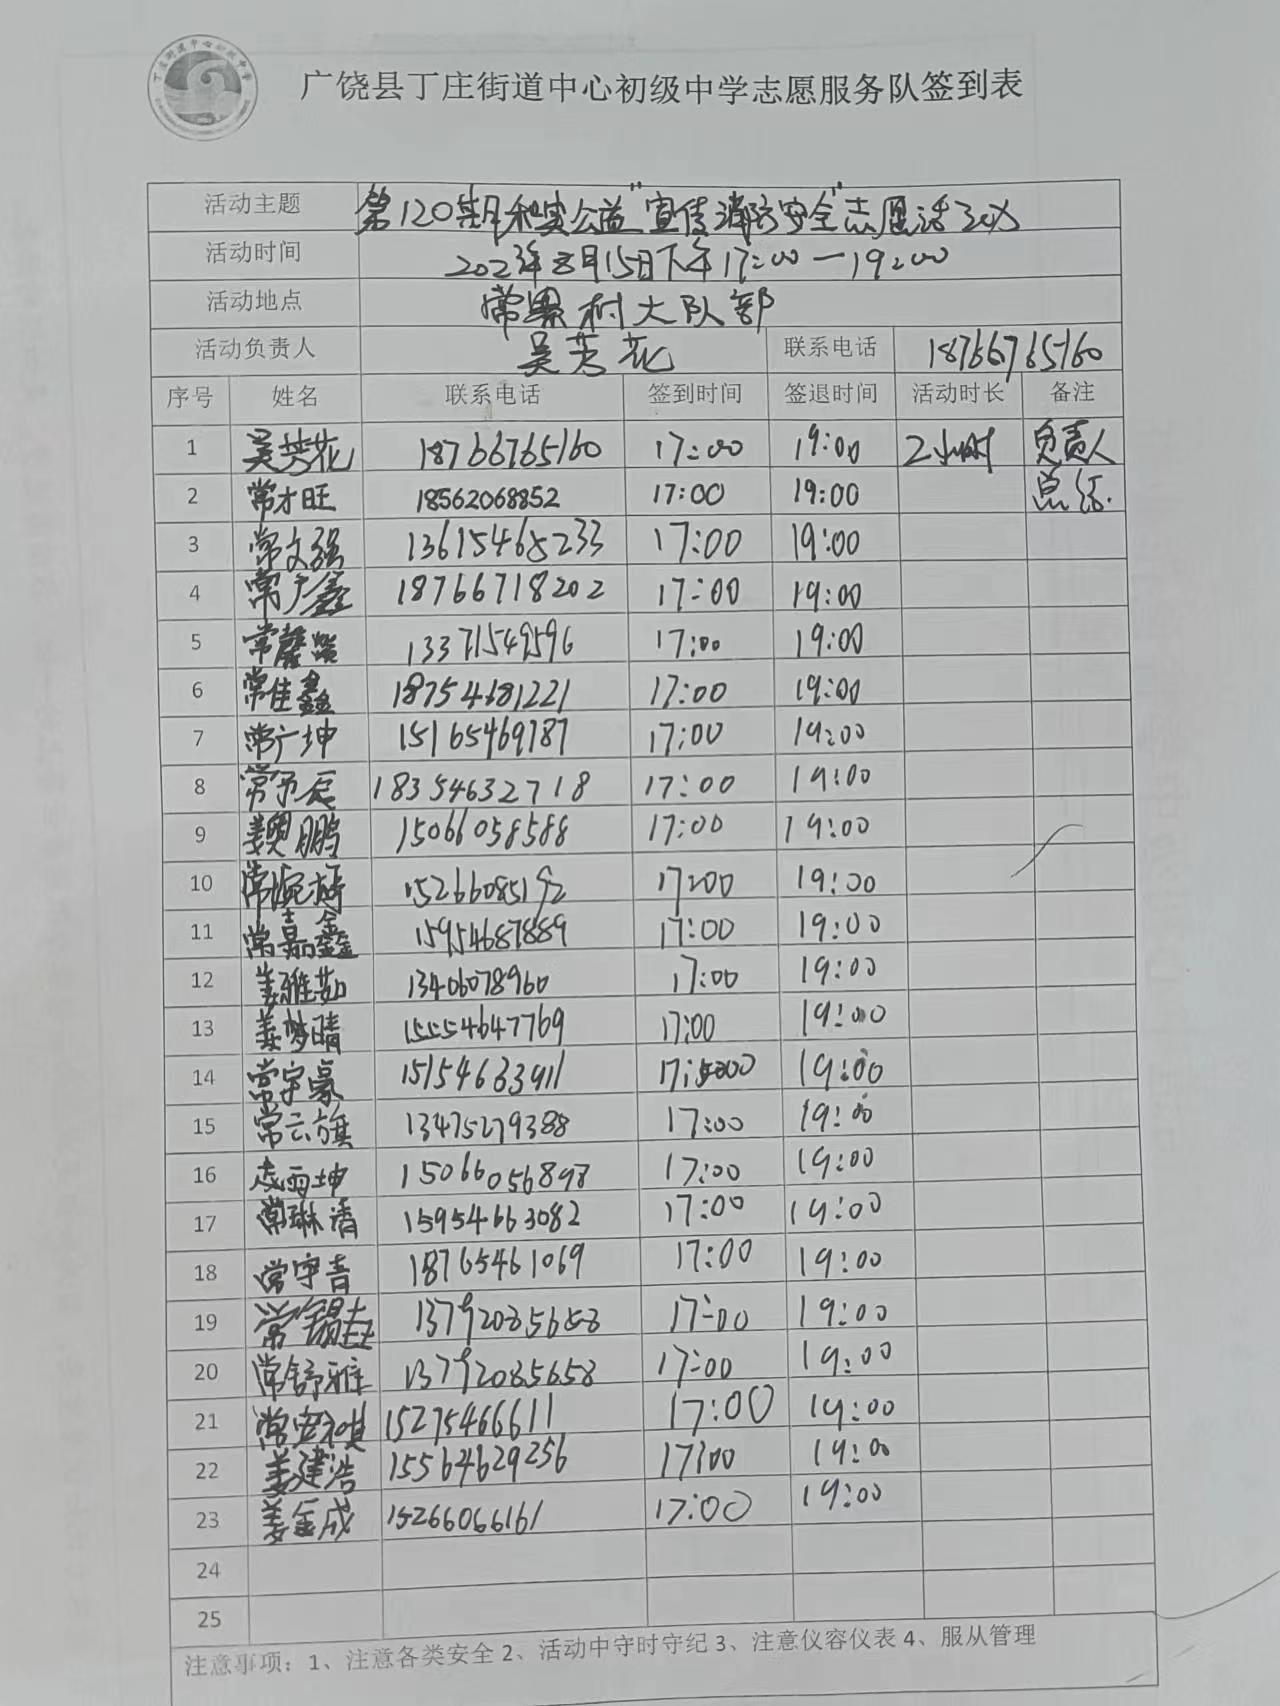 广饶县丁庄街道中心初级中学志愿服务队签到表
活动主题 第120期和实公益"宣传消防安全"志愿活动
活动时间 2023年8月15日下午17:00—19:00
活动地点 常果村大队部
活动负责人 吴芳花 联系电话 18766765160
序号 姓名 联系电话 签到时间 签退时间 活动时长 备注
1 吴芳花 18766765160 17:00 19:00 2小时 负责人
2 常才旺 18562068852 17:00 19:00 总结.
3 常文强 13615465233 17:00 19:00
4 常广鑫 18766718202 17:00 19:00
5 常馨 13371549596 17:00 19:00
6 常佳鑫 18754681221 17:00 19:00
7 常广坤 15165469787 17:00 19:00
8 常予辰 18354632718 17:00 19:00
9 姜奥鹏 15066058588 17:00 19:00
10 常婉婷 15266085192 17:00 19:00
11 常嘉鑫 15954687889 17:00 19:00
12 姜雅茹 13406078960 17:00 19:00
13 姜梦晴 15554647769 17:00 19:00
14 常宇豪 15154633911 17:00 19:00
15 常云旗 13475279388 17:00 19:00
16 雨坤 15066056898 17:00 19:00
17 常琳清 15954663082 17:00 19:00
18 常宇青 18765461069 17:00 19:00
19 常锡喆 13792085658 17:00 19:00
20 常舒雅 13792085658 17:00 19:00
21 常安祺 15275466611 17:00 19:00
22 姜建浩 15564629256 17:00 19:00
23 姜金成 15266066161 17:00 19:00
24
25
注意事项：1、注意各类安全 2、活动中守时守纪 3、注意仪容仪表 4、服从管理